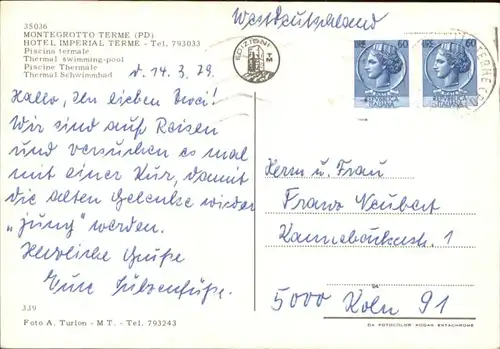 35036
MONTEGROTTO TERME (PD)
HOTEL IMPERIAL TERME - Tel. 793033
Piscina termale
Thermal swimming-pool
Piscine Thermale
Thermal Schwimmbad
EDIZIONI
TM
Westdeutschland
60
60
TERME
d. 14.3.79.
Hallo, Ihr lieben Zwei!
Wir sind auf Reisen
und versuchen es mal
mit einer Kur, damit
die alten Gelenke wieder
„jung" werden.
Herzliche Grüße
Eure
Herrn u. Frau
Franz Neubert
1
5000 Köln 91
339
Foto A. Turlon - M T. - Tel. 793243
DA FOTOCOLOR KODAK EKTACHROME